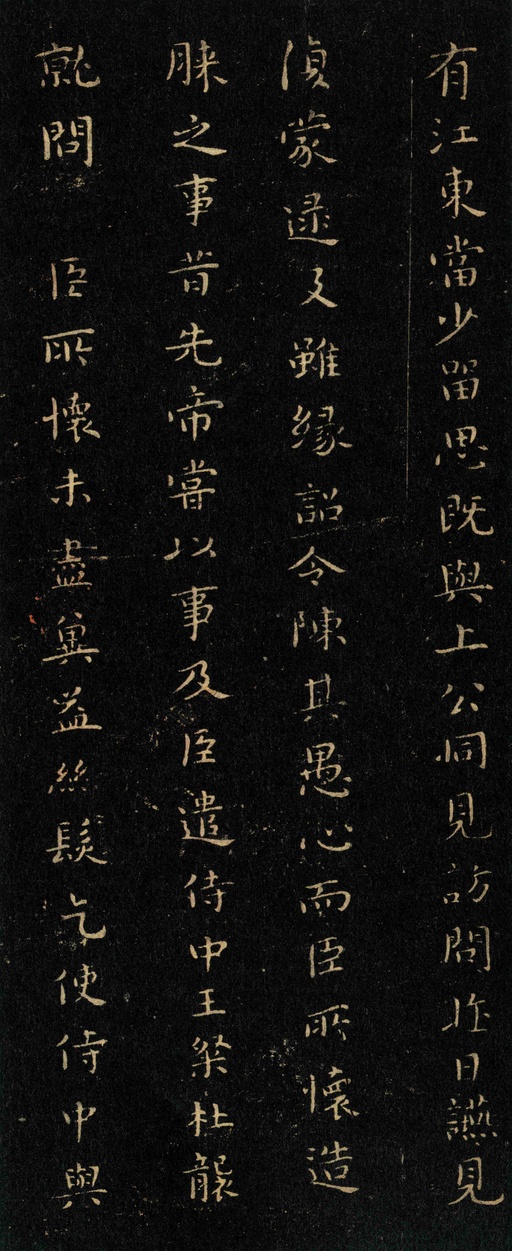 有江東當少留思既與上公同見訪問昨日讌見
偵蒙逮及雖緣詔令陳其愚心而臣所懷造
膝之事昔先帝嘗以事及臣遣侍中王粲杜襲
就問 臣所懷未盡冀益絲髮乞使侍中與